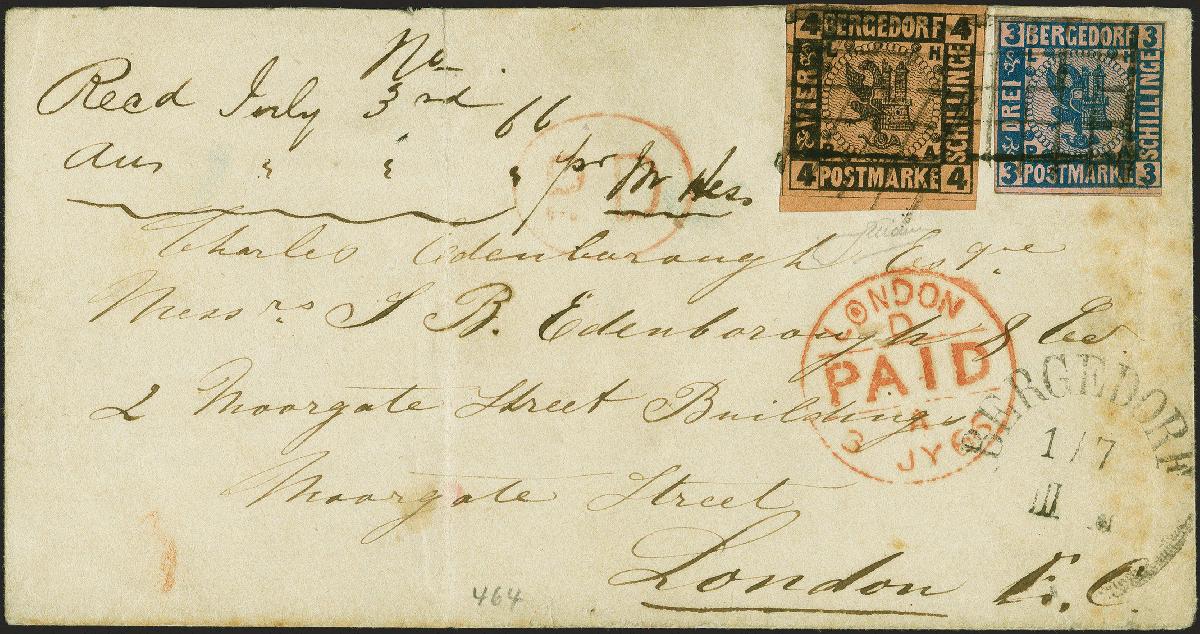 No
Recd July 3rd 66
ans " " " pr
P D
4 BERGEDORF 4
VIER
SCHILLINGE
4 POSTMARKE 4
3 BERGEDORF 3
DREI
SCHILLINGE
3 POSTMARKE 3
Charles Edenborough Esqre
Messrs S B. Edenborough & Co.
2 Moorgate Street Buildings
Moorgate Street
London E.C.
LONDON
D
PAID
A
3 JY 66
BERGEDORF
1/7
III
464